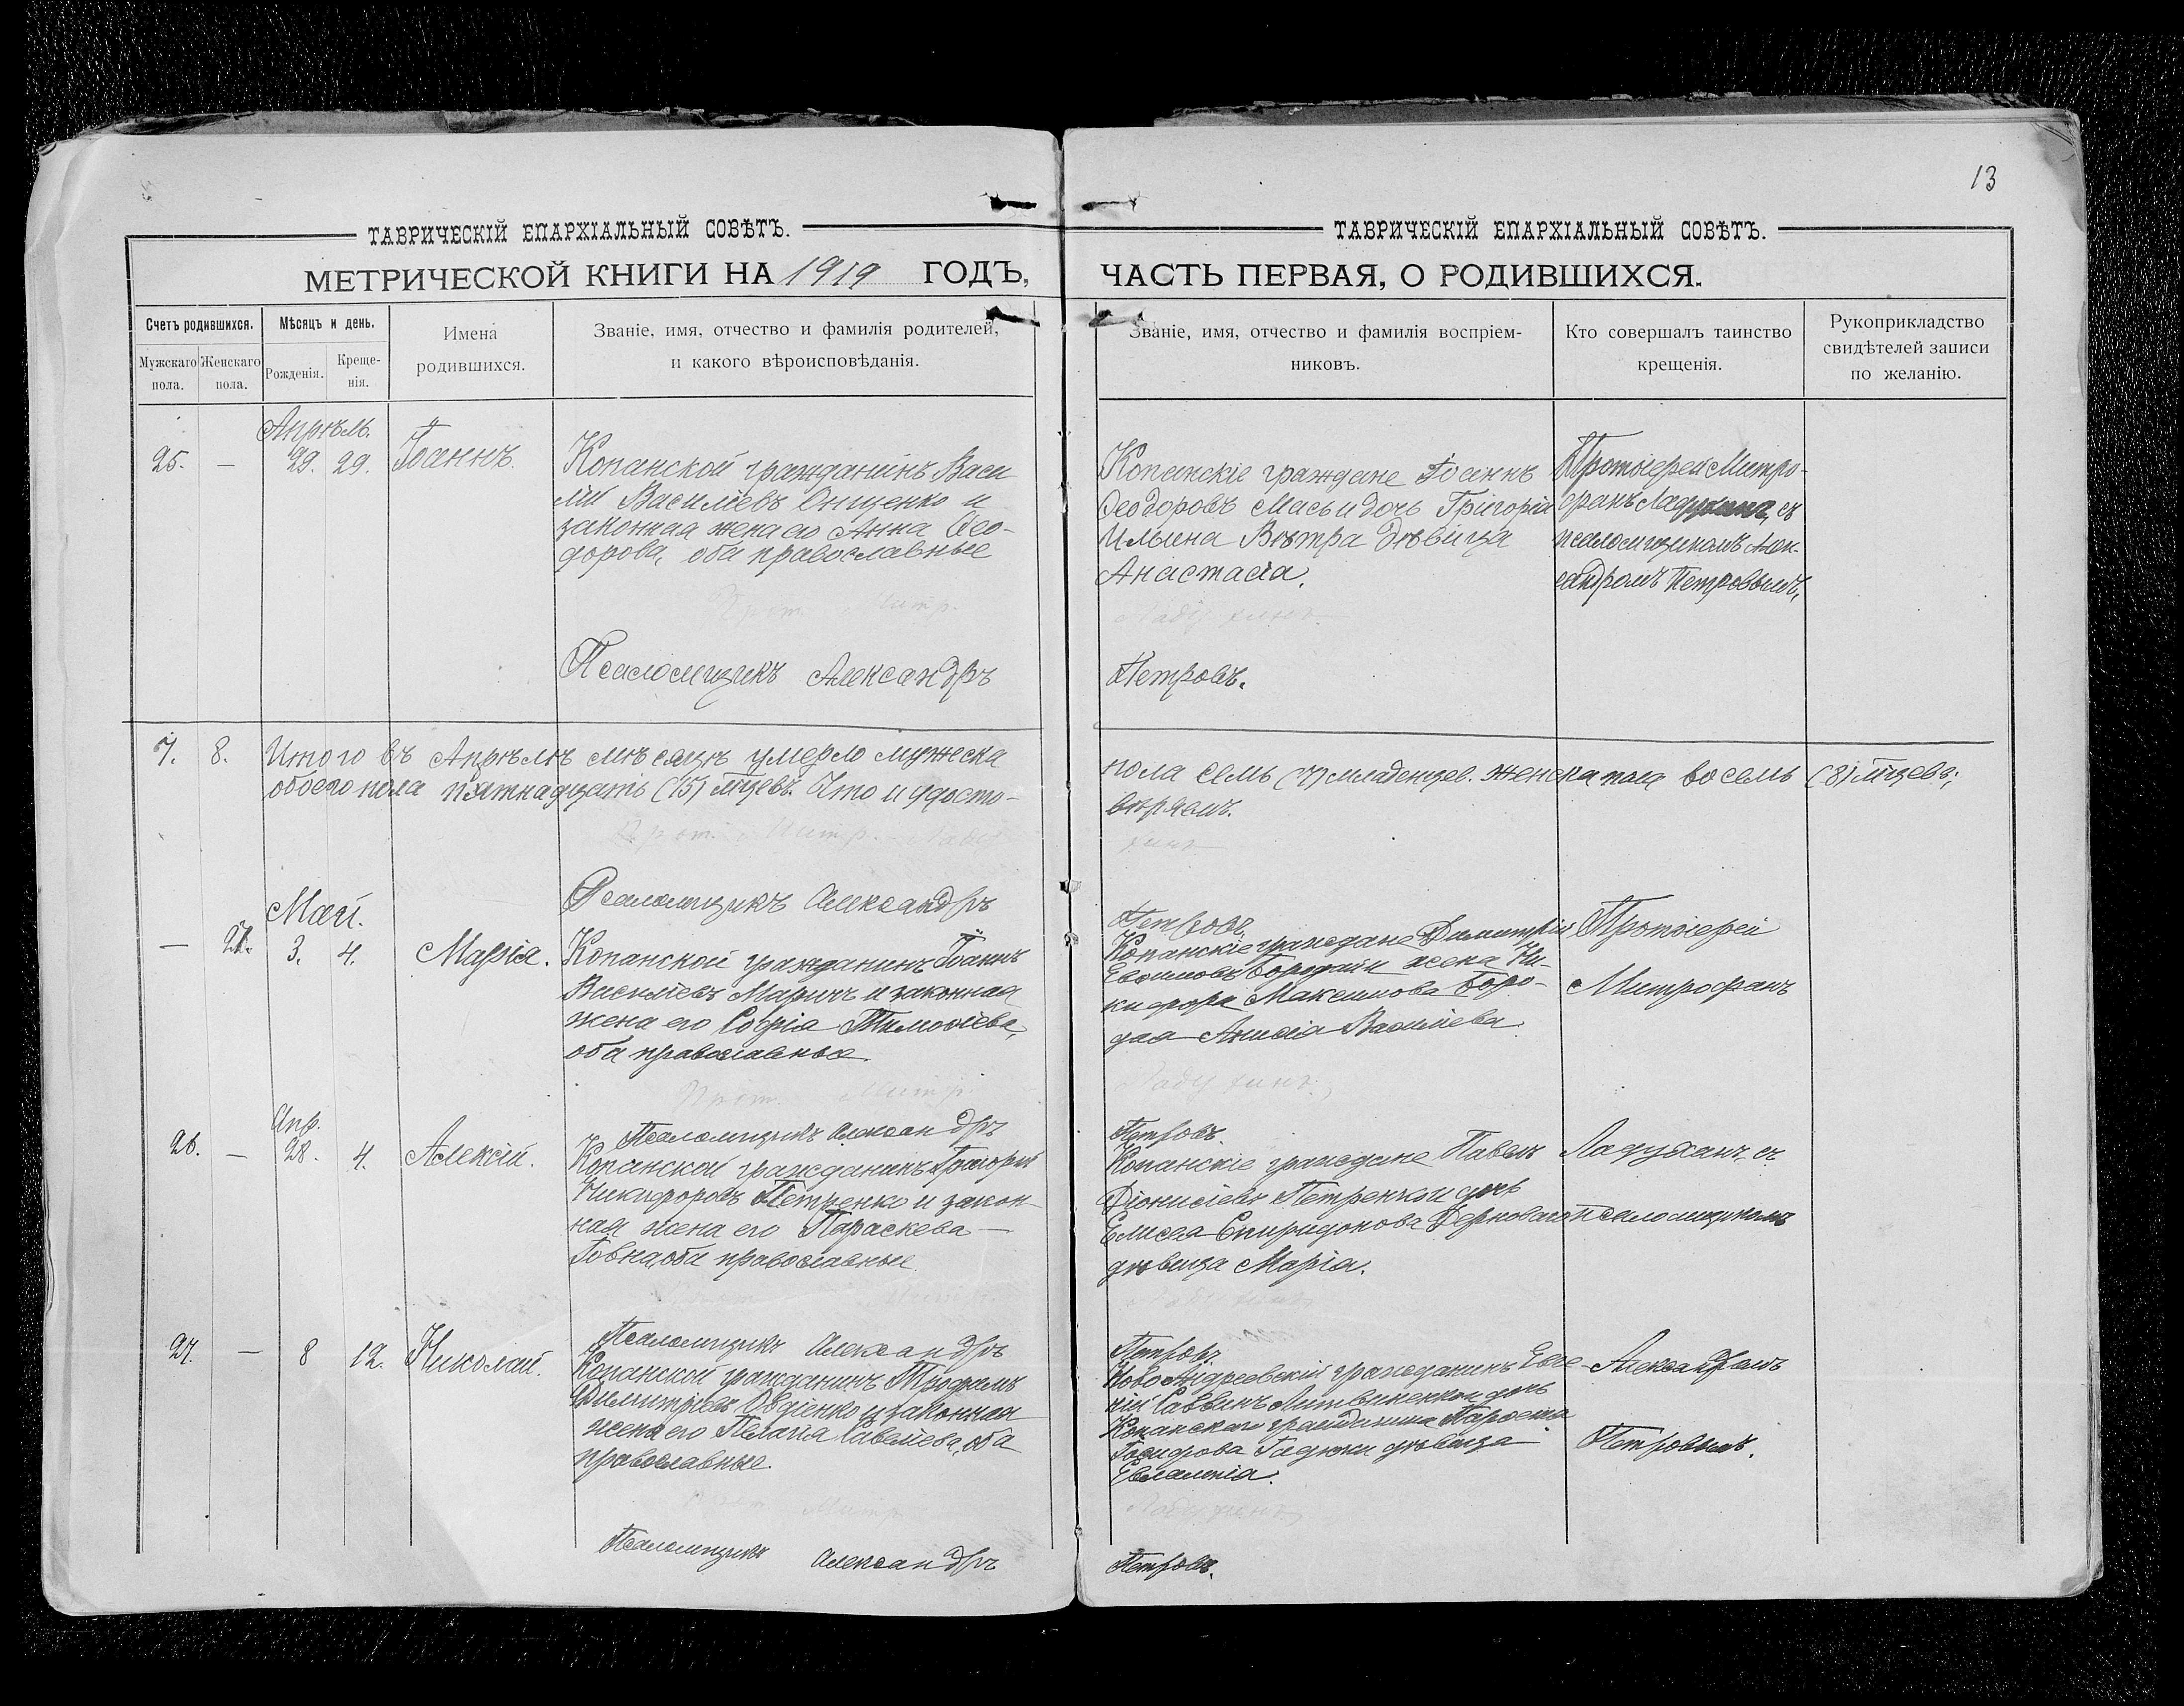 13
ТАВРИЧЕСКІЙ ЕПАРХІАЛЬНЫЙ СОВѢТЪ.
МЕТРИЧЕСКОЙ КНИГИ НА 1919 ГОДЪ,
Счетъ родившихся.
Мужскаго пола.
Женскаго пола.
Мѣсяцъ и день.
Рожденія.
Креще-
нія.
Имена
родившихся.
Званіе, имя, отчество и фамилія родителей,
и какого вѣроисповѣданія.
ТАВРИЧЕСКІЙ ЕПАРХІАЛЬНЫЙ СОВѢТЪ.
ЧАСТЬ ПЕРВАЯ, О РОДИВШИХСЯ.
Званіе, имя, отчество и фамилія воспріем-
никовъ.
Кто совершалъ таинство
крещенія.
Рукоприкладство
свидѣтелей записи
по желанію.
Апрѣль.
25. — 29. 29. Іоаннъ.
Копанской гражданинъ Васи
лій Василіевъ Онищенко и
законная жена его Анна Ѳео-
дорова, оба православные
Прот. Митр.
Псаломщикъ Александръ
Копанскіе граждане Іоаннъ
Ѳеодоровъ Мась и дочь Григорія
Ильина Вѣтра дѣвица
Анастасія.
Ладухинъ.
Петровъ.
Протоіерей Митро-
фанъ съ
псаломщикомъ Алек-
сандромъ Петровымъ.
7. 8. Итого въ Апрѣлѣ мѣсяцѣ умерло мужеска
пола семь (7) младенцев. женска пола восемь (8) мцевъ;
обоего пола пятнадцать (15) мцевъ. Что и удосто-
вѣряемъ.
Прот. Митр. Ладу
хинъ
Псаломщикъ Александръ
Петровъ.
Май.
— 3. 4. Марія.
Копанской гражданинъ Іоаннъ
Василіевъ Маричъ и законная
жена его Софія Тимоѳіева,
оба православные.
Прот. Митр.
Псаломщикъ Александръ
Копанскіе граждане Димитрій
Евѳимовъ Бородай и жена Ни-
кифора Максимова Боро-
дая Василіева.
Ладухинъ.
Петровъ.
Протоіерей
Митрофанъ
Апр.
26. — 28. 4. Алексій.
Копанской гражданинъ Григорій
Никифоровъ Петренко и закон-
ная жена его Параскева
Іовна, оба православные.
Митр.
Псаломщикъ Александръ
Копанскіе граждане Павелъ
Діонисіевъ Петренко и дочь
Елисея Спиридонова Дерноваго
дѣвица Марія.
Ладухинъ
Петровъ
Ладухинъ съ
псаломщикомъ
27. — 8 12. Николай.
Копанской гражданинъ Трофимъ
Димитріевъ Овдіенко и законная
жена его Пелагія Савеліева, оба
православные.
Прот. Митр.
Псаломщикъ Александръ
Ново Андреевскій гражданинъ Евге-
ній Саввинъ Литвиненко и дочь
Копанскаго гражданина
дѣвица
Евлампія.
Ладухинъ
Петровъ.
Александромъ
Петровымъ.